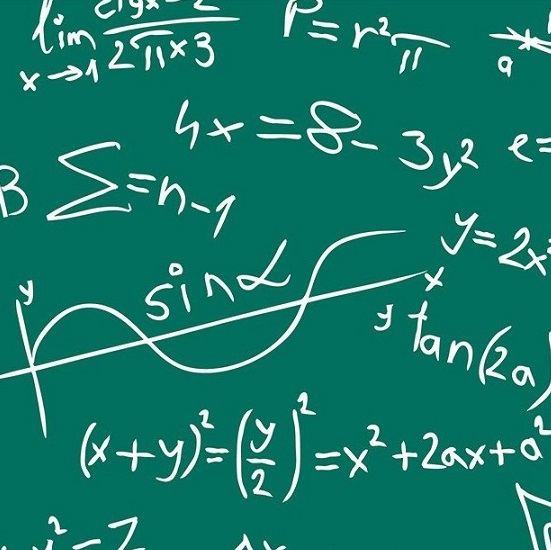 lim x→1 / 2π×3
P=r²π
a
4x=8-3y²
e=
B Σ=n-1
y=2x
y
sinα
x
y
tan(2a)
(x+y)²=(y/2)²=x²+2ax+a²
y²=7